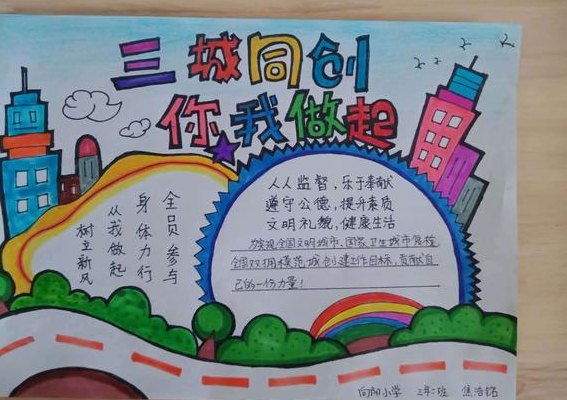 三城同创
你我做起
全员参与
身体力行
从我做起
树立新风
人人监督，乐于奉献
遵守公德，提升素质
文明礼貌，健康生活
全国文明城市、国家卫生城市
全国双拥模范城创建工作目标，贡献自
己的一份力量！
向阳小学 三年二班 焦浩铭